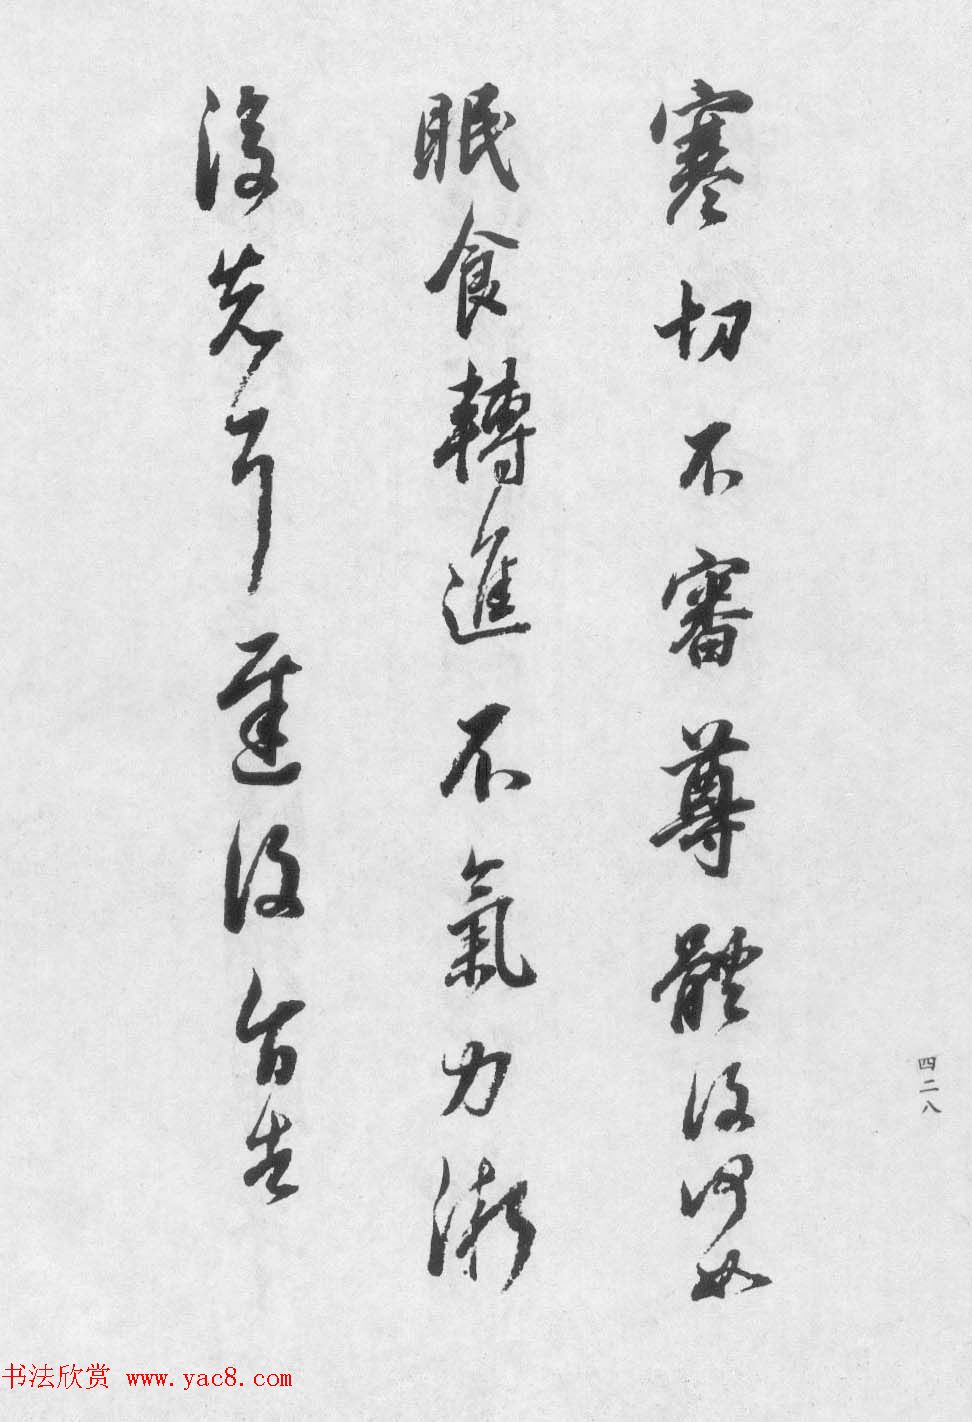 四二八
寒切不審尊體復何如
眠食轉進不氣力漸
復耳遲復旨告
书法欣赏 www.yac8.com